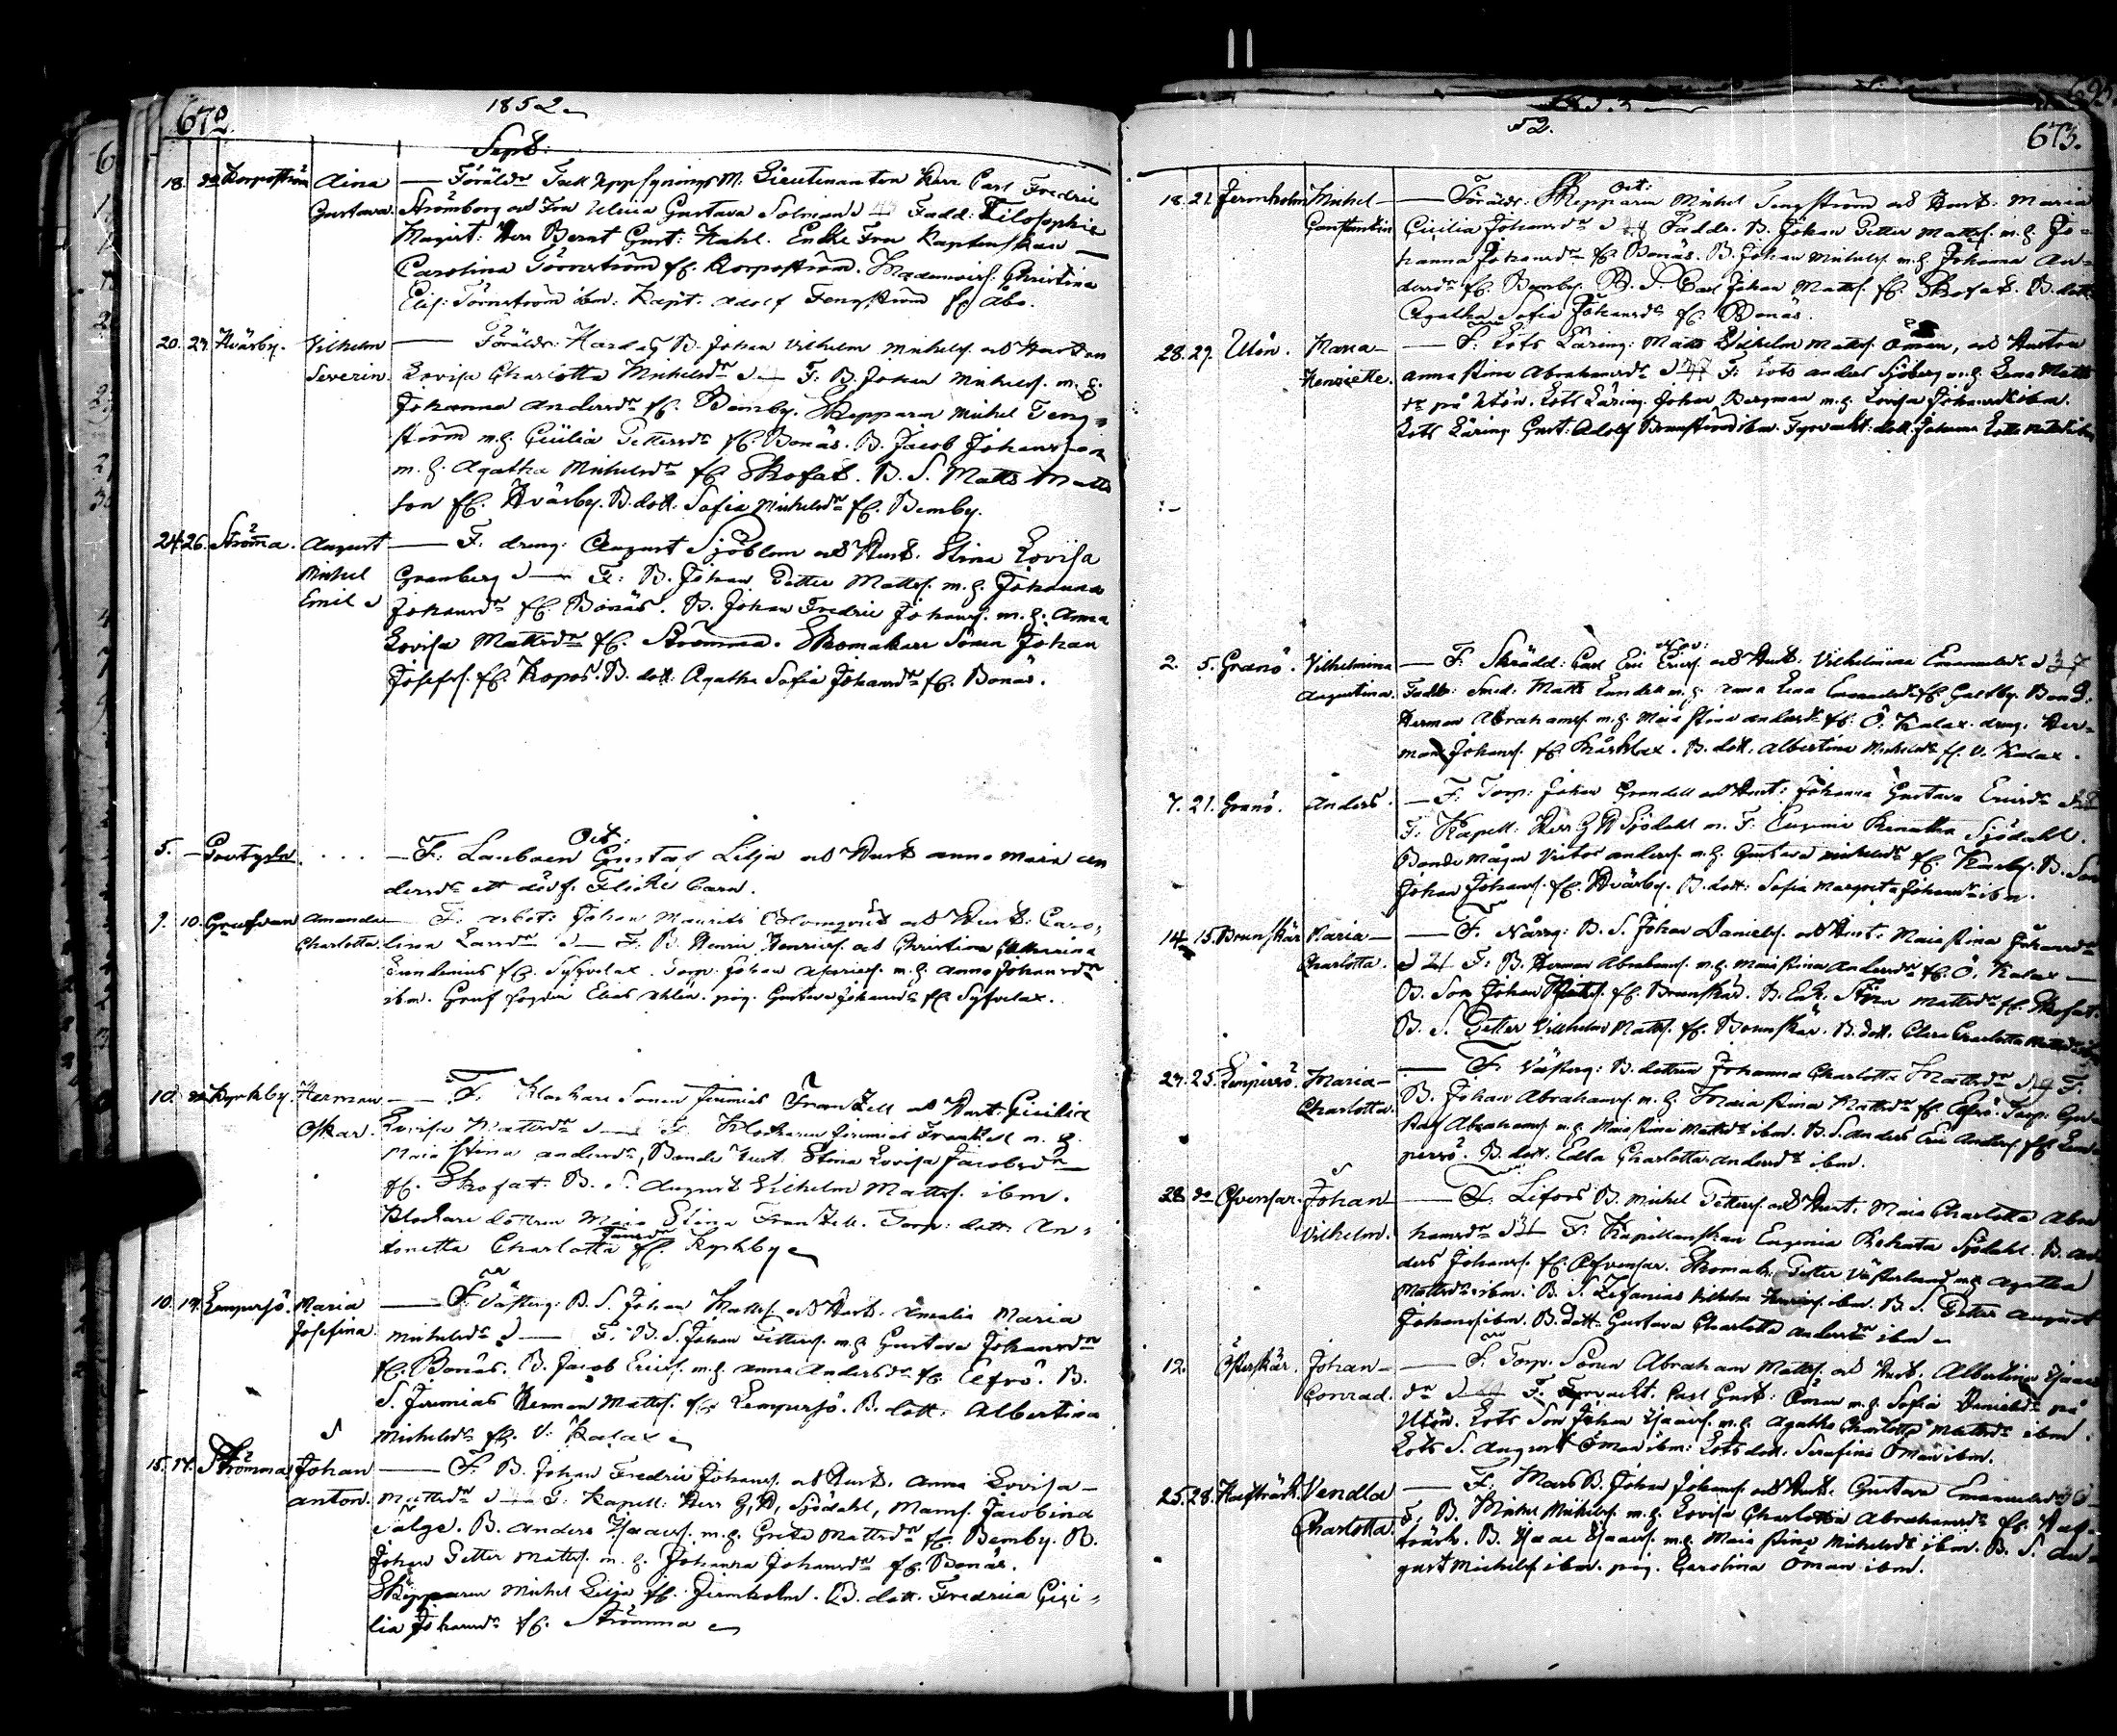 672
1852
Sept:
18. do Korpoström Aina — Föräldr Tull Uppsynings M. Lieutenanten Herr Carl Fredric
Gustava. Strömborg och Fru Ulrica Gustava Solman Fadd: Filosophie
Magist: Herr Bernt Gust: Kahl. Enke Fru Kaptenskan
Carolina Törnström fr. Korpoström. Mademois. Christina
Elis: Törnström ibm: Kapt. Adolf Tengström fr Åbo.
20. 27. Hvarby. Vilhelm — Föräldr: B. Johan Vilhelm Michels. och Hustrun
Severin. Lovisa Charlotta Michelsdr — F: B. Johan Michels. m. h.
Johanna Andersdr fr. Bemby. Skepparn Michel Teng-
ström m. h. Cecilia Pettersdr fr. Bonäs. B. Jacob Johansson
m. h. Agatha Michelsdr fr Skofat. B. S. Matts Matts
son fr. Hvarby. B. dott. Sofia Michelsdr fr. Bemby.
24. 26. Strömma. August — F. dreng: August Sjöblom och Hust. Stina Lovisa
Michel Granberg — F: B. Johan Petter Matts. m. h. Johanna
Emil Johansdr fr. Bonäs. B. Johan Fredric Johans. m. h. Anna
Lovisa Mattsdr fr. Strömma. Skomakare Sonen Johan
Josefs. fr. Kopos. B. dott: Agatha Sofia Johansdr fr. Bonäs.
Oct:
5. — . . . — F: Gustaf Lilja och Hust Anna Maria An
dersdr ett dödf. Flicke barn.
9. 10. Amanda — F: Johan Maurits Holmqvist och Hust: Caro-
Charlotta. lina — F. B. Henric Henrics. och Christina Catharina
Sundenius fr. Syfvelax. Torp. Johan m. h. Anna Johansdr
ibm. Elias pig. Gustava Johansdr fr Syfvelax.
10. do Kyrkby. Herman — F. Klockare Sonen Jeremias Frantzell och Hust. Cecilia
Oskar. Lovisa Mattsdr — F. Klockaren Jeremias Frantzell m. h.
Maia Stina Andersdr, Bonde Hust. Stina Lovisa Jacobsdr
fr. Skofat. B. S. August Vilhelm Matts. ibm.
Klockare dottren Maia Stina Frantzell. Torp: dott: An-
tonetta Charlotta fr. Kyrkby
10. 17. Lempersö. Maria — F. B. S. Johan Matts. och Hust. Amalia Maria
Josefina. Michelsdr — F: B. S. Johan Petters. m. h Gustava Johansdr
fr. Bonäs. B. Jacob Erics. m. h. Anna Andersdr fr B.
S. Jeremias Herman Matts. fr Lempersö. B. dott. Albertina
Michelsdr fr. V. Kalax
15. 17. Strömma Johan — F. B. Johan Fredric Johans. och Hust. Anna Lovisa
Anton. Mattsdr — F: Kapell: Herr G, A, Sjödahl, Mams. Jacobina
Salge. B. Anders Isaacs. m. h. Greta Mattsdr fr. Bemby. B.
Johan Petter Matts. m. h. Johanna Johansdr fr. Bonäs.
Skepparen Michel Lilja fr. Jermholm. B. dott. Fredrica Ceci-
lia Johansdr fr. Strömma
52.
673.
Oct:
18. 21. Jermholm Michel — Föräldr: Skepparn Michel Tengström och Hust: Maria
Constantin Cecilia Johansdr Faddr. B. Johan Petter Matts. m. h. Jo-
hanna Johansdr fr Bonäs. B. Johan Michels. m. h. Johanna An-
dersdr fr. Bemby. B. S. Carl Johan Matts. fr. Skofat. B. dott
Agatha Sofia Johansdr fr Bonäs.
28. 29. Utön. Maria — F. Lots Läring: Matts Vilhelm Matts. Öman, och Hustru
Henriette. Anna Stina Abrahamsdr F: Lots Anders Sjöberg m. h. Lena Matts
dr på Utön. Lots Läring. Johan Bergman m. h. Lovisa Johansdr ibm.
Lots Läring Gust: Adolf Brunström ibm. Fyrvackt: dott: Johanna
Nov:
2. 5. Granö. Vilhelmina — F: Skrädd: Carl Eric Erics. och Hust: Vilhelmina Emanuelsdr 37
Augustina. Faddr: Smed: Matts m. h. Emanuelsdr fr Galtby. Bond.
Herman Abrahams. m. h. Maia Stina Andersdr fr. Ö. Kalax. dreng. Her-
man Johans. fr. B. dott. Albertina Michelsdr fr. V. Kalax.
7. 21. Granö. Anders. — F: Torp: Johan Grondell och Hust: Johanna Gustava Ericsdr
F: Kapell: Herr G A Sjödahl m. F: Eugenia Renatha Sjödahl.
Bonde Mågen Victor Anders. m. h. Gustava Michelsdr fr. B. Son
Johan Johans. fr. Hvarby. B. dott: Sofia Margreta Johansdr ibm.
14. 15. Brunskär Maria — F. B. S. Johan Daniels. och Hust: Maia Stina Johansdr
Charlotta. 21 F: B. Herman Abrahams. m. h. Maia Stina Andersdr fr. Ö. Kalax
B. Son Johan Matts. fr. Brunskär. B. Enk. Stina Mattsdr fr. Skofat.
B. S. Petter Vilhelm Matts. fr. Brunskär. B. dott. Clara Charlotta
24. 25. Lempersö. Maria — F. B. dottren Johanna Charlotta Mattsdr F:
Charlotta. B. Johan Abrahams. m. h. Maia Stina Mattsdr fr Torp: Gus-
taf Abrahams. m. h. Maia Stina Mattsdr ibm. B. S. Anders Eric Anders. fr Lem-
persö. B. dott. Edla Charlotta Andersdr ibm.
28. do Johan — F. B. Michel Petters. och Hust. Maia Charlotta Abra
Vilhelm. hamsdr 31 F: Kapellanskan Eugenia Renata Sjödahl. B. An-
ders Johans. fr. Skomak: Petter Västerlund m. h. Agatha
Mattsdr ibm. B. S. Zefanias Vilhelm Henrics. ibm. B. S. Petter August
Johans. ibm. B. dott. Gustava Charlotta Andersdr ibm
12. Österskär. Johan — F. Torp. Sonen Abraham Matts. och Hust. Albertina Isaacs
Conrad. dr F. Fyrvackt. Carl Gust: Öman m. h. Sofia Danielsdr på
Utön. Lots Son Johan Isaacs. m. h. Agatha Charlotta Mattsdr ibm.
Lots S. August Öman ibm: Lots dott. Serafina Öman ibm.
25. 28. Vendla — F. B. Johan Johans. och Hust. Gustava Emanuelsdr
Charlotta. F. B. Michel Michels. m. h. Lovisa Charlotta Abrahamsdr fr.
B. Isaac Isaacs. m. h. Maia Stina Michelsdr ibm. B. S. Au-
gust Michels. ibm. pig. Carolina Öman ibm.